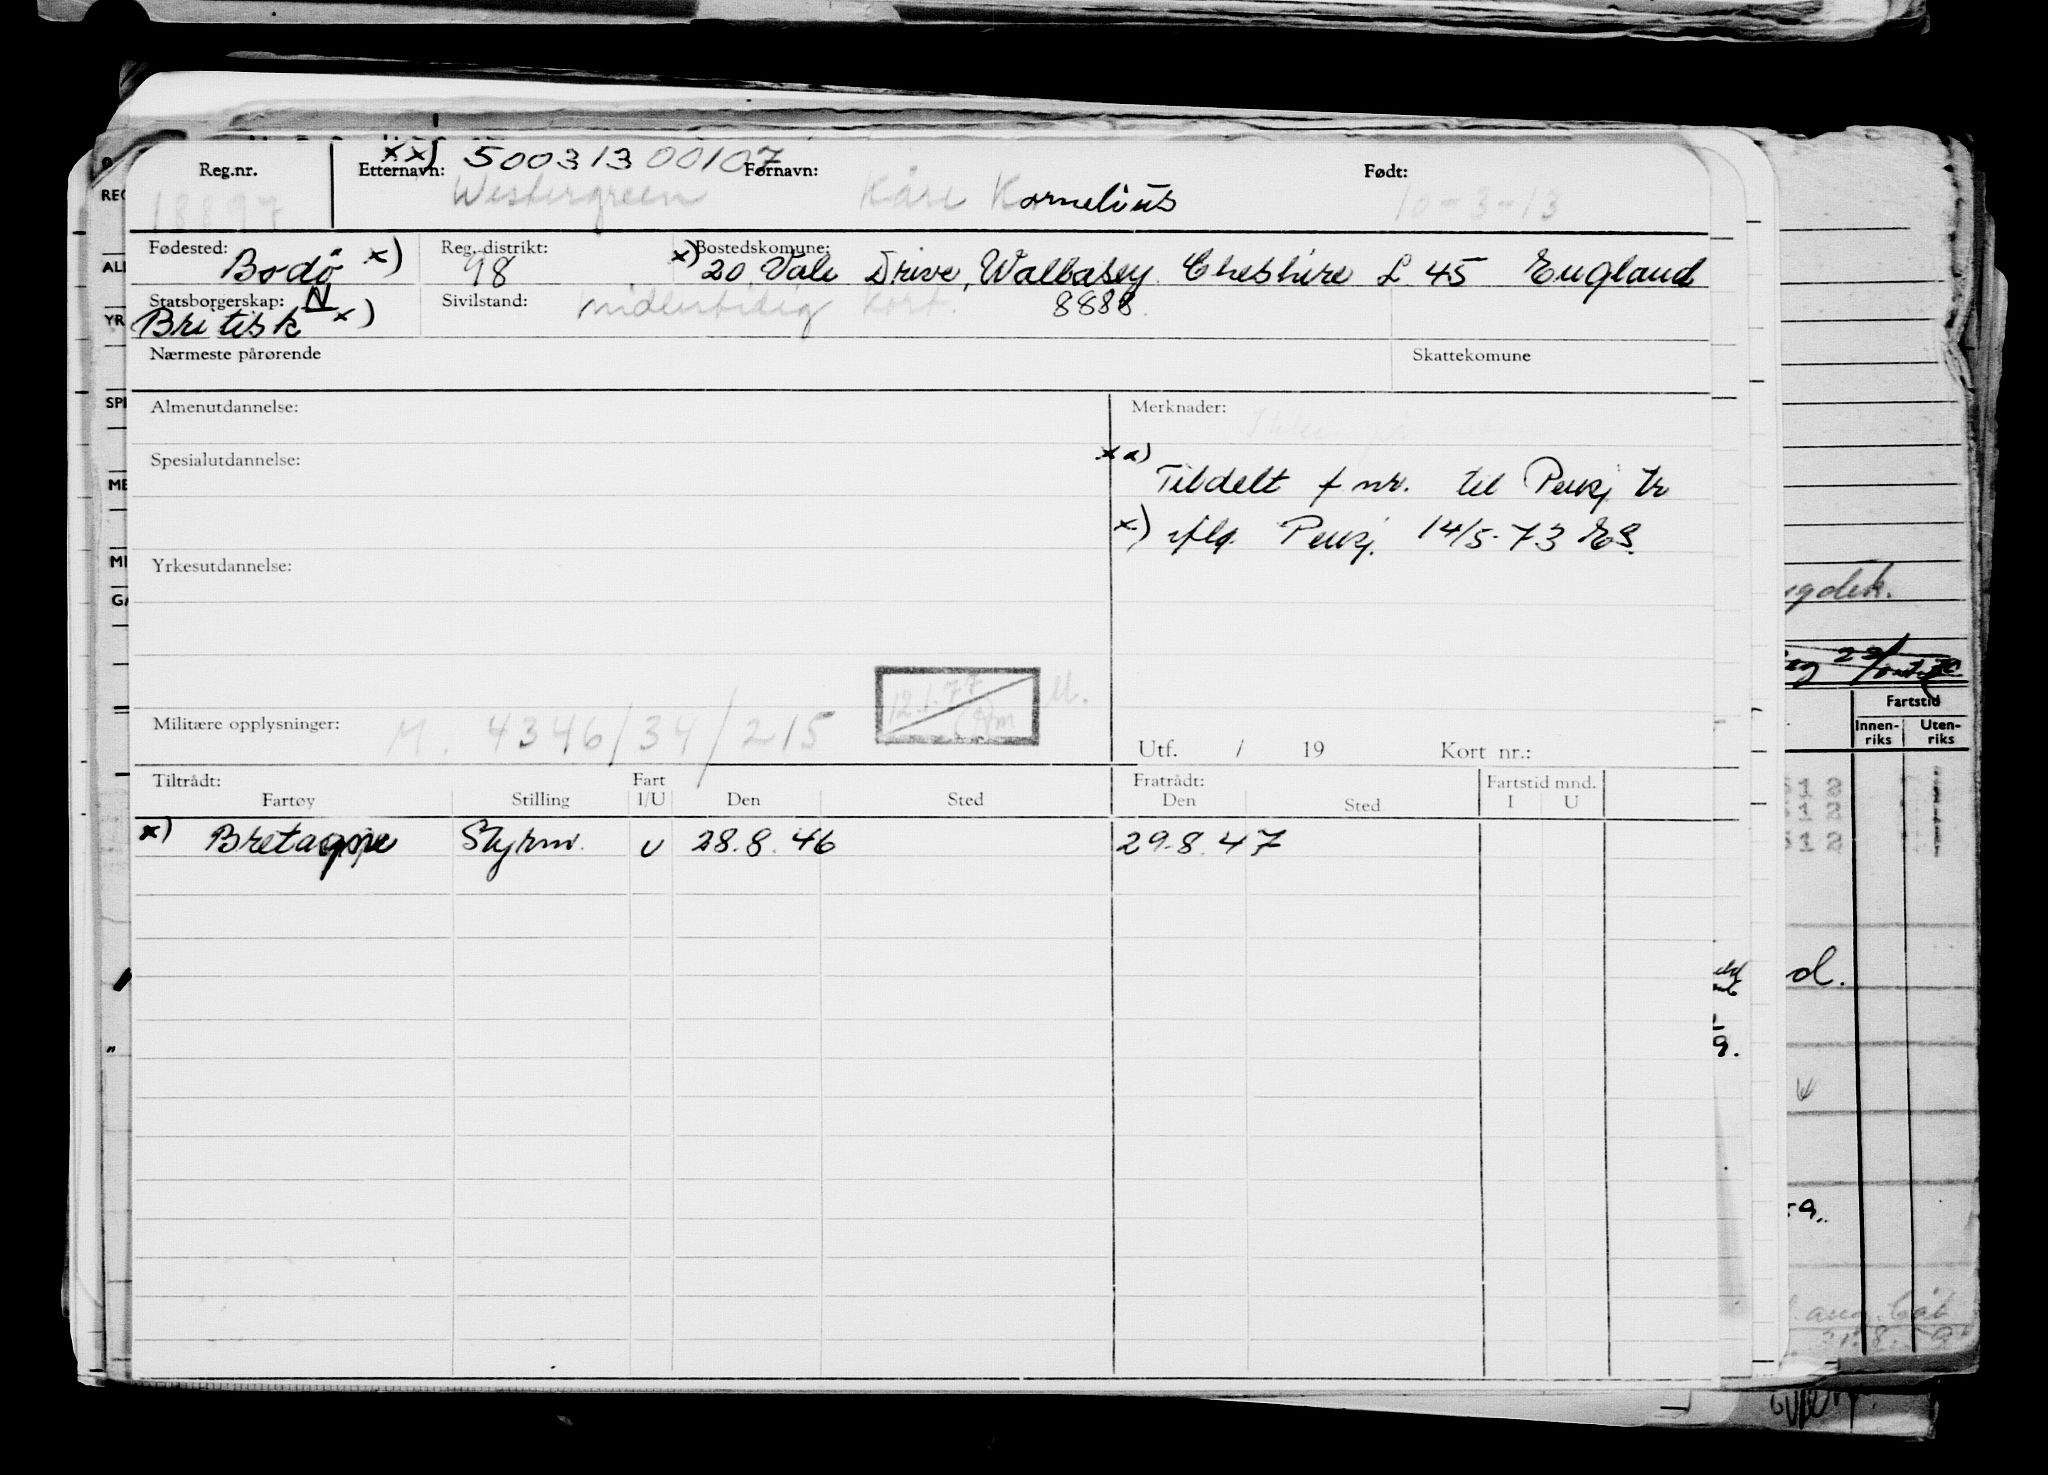 xx) 500313 00107
Reg.nr. Etternavn: Fornavn: Født:
18897 Westergreen Kåre Kornelius 10-3-13
Fødested: Reg. distrikt: Bostedskomune:
Bodö x) 98 x) 20 Vale Drive, Wallasey. Cheshire L 45 England
Statsborgerskap: N Sivilstand: midlertidig kort. 8888.
Britisk x)
Nærmeste pårørende Skattekomune
Almenutdannelse: Merknader:
Ikke
Spesialutdannelse:
xx) Tildelt f nr. til
x) iflg. 14/5-73 ES.
Yrkesutdannelse:
12.1.77 M.
Militære opplysninger: M. 4346/34/215
Utf. / 19 Kort nr.:
Tiltrådt: Fart Fratrådt: Fartstid mnd.
Fartøy Stilling I/U Den Sted Den Sted I U
x) Bretagne Styrm. U 28.8.46 29.8.47
REG
YR
SPE
Fartstid
Innen-riks Uten-riks
512
512
512
d.
9.